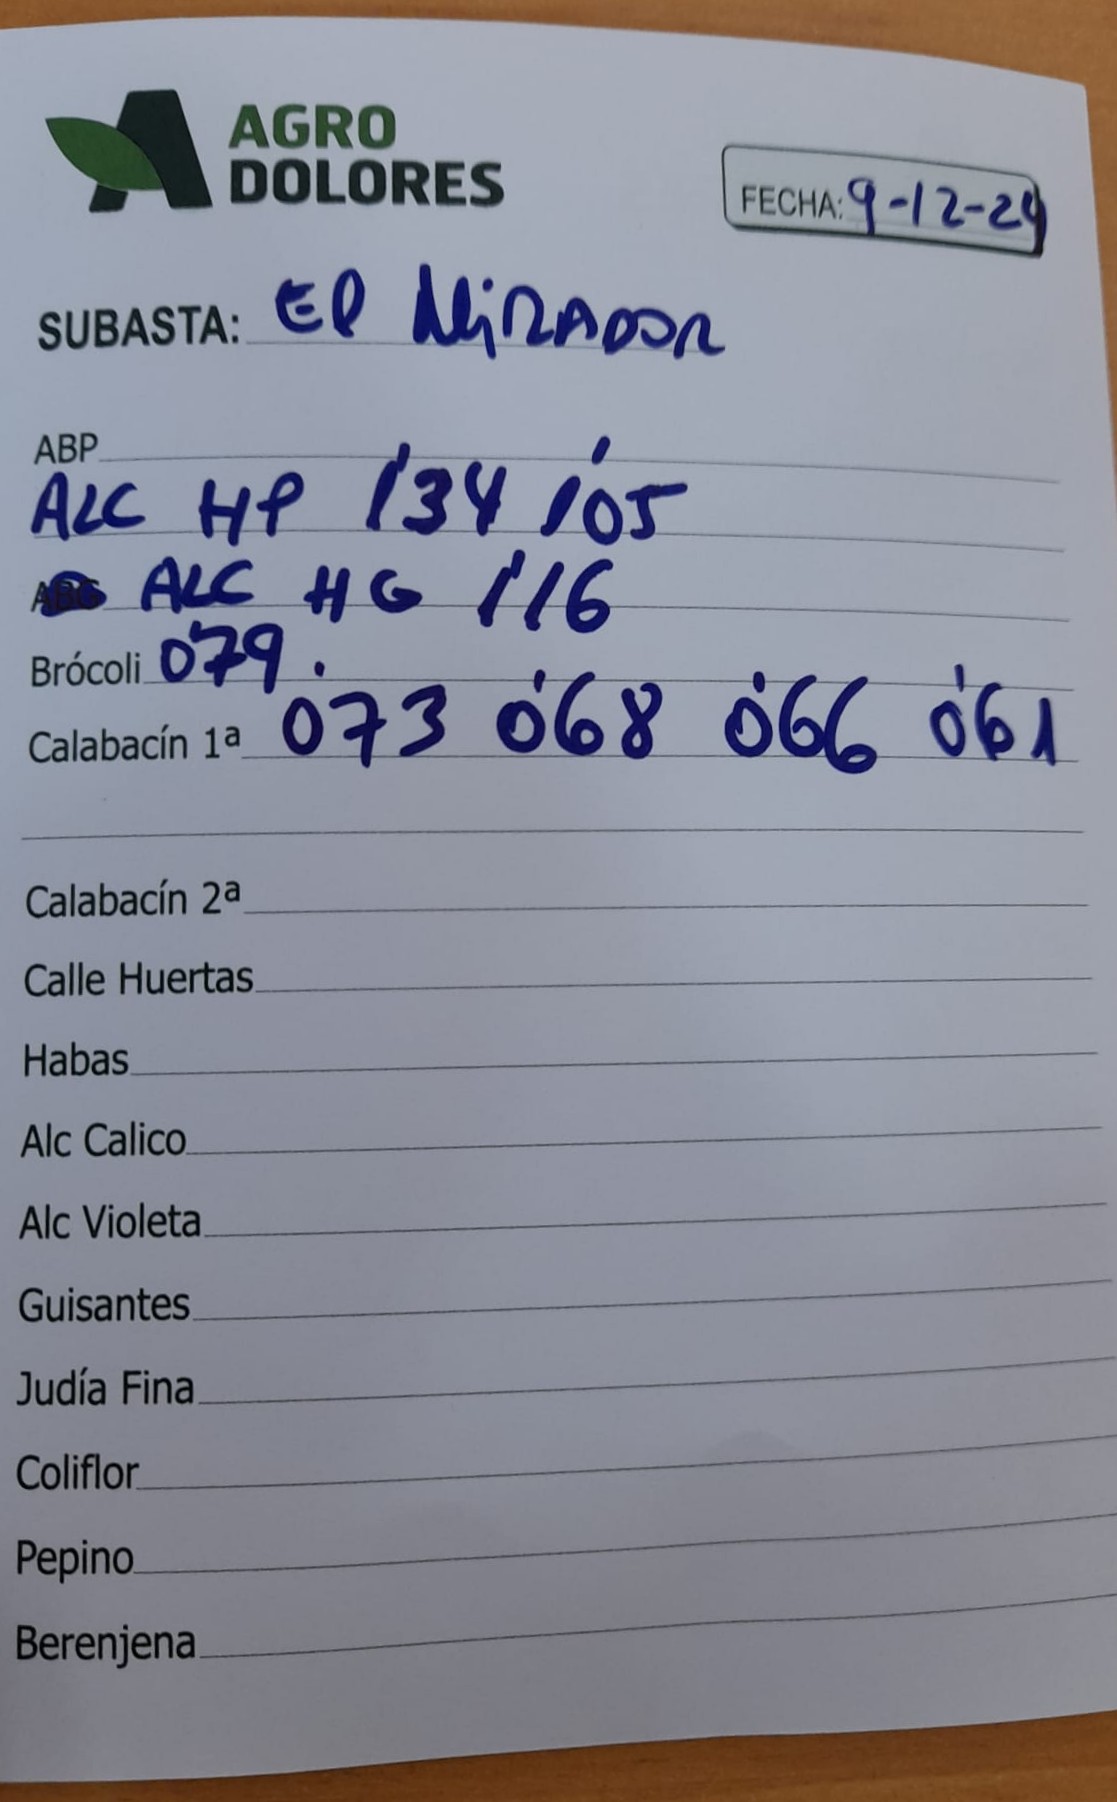 AGRO
DOLORES
FECHA: 9-12-24
SUBASTA: El MiRADOR
ABP
ALC HP 1'34 1'05
ABG ALC HG 1'16
Brócoli 0'79.
Calabacín 1ª 0'73 0'68 0'66 0'61
Calabacín 2ª
Calle Huertas
Habas
Alc Calico
Alc Violeta
Guisantes
Judía Fina
Coliflor
Pepino
Berenjena